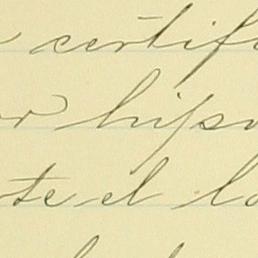 certif
or hipo
te el lo